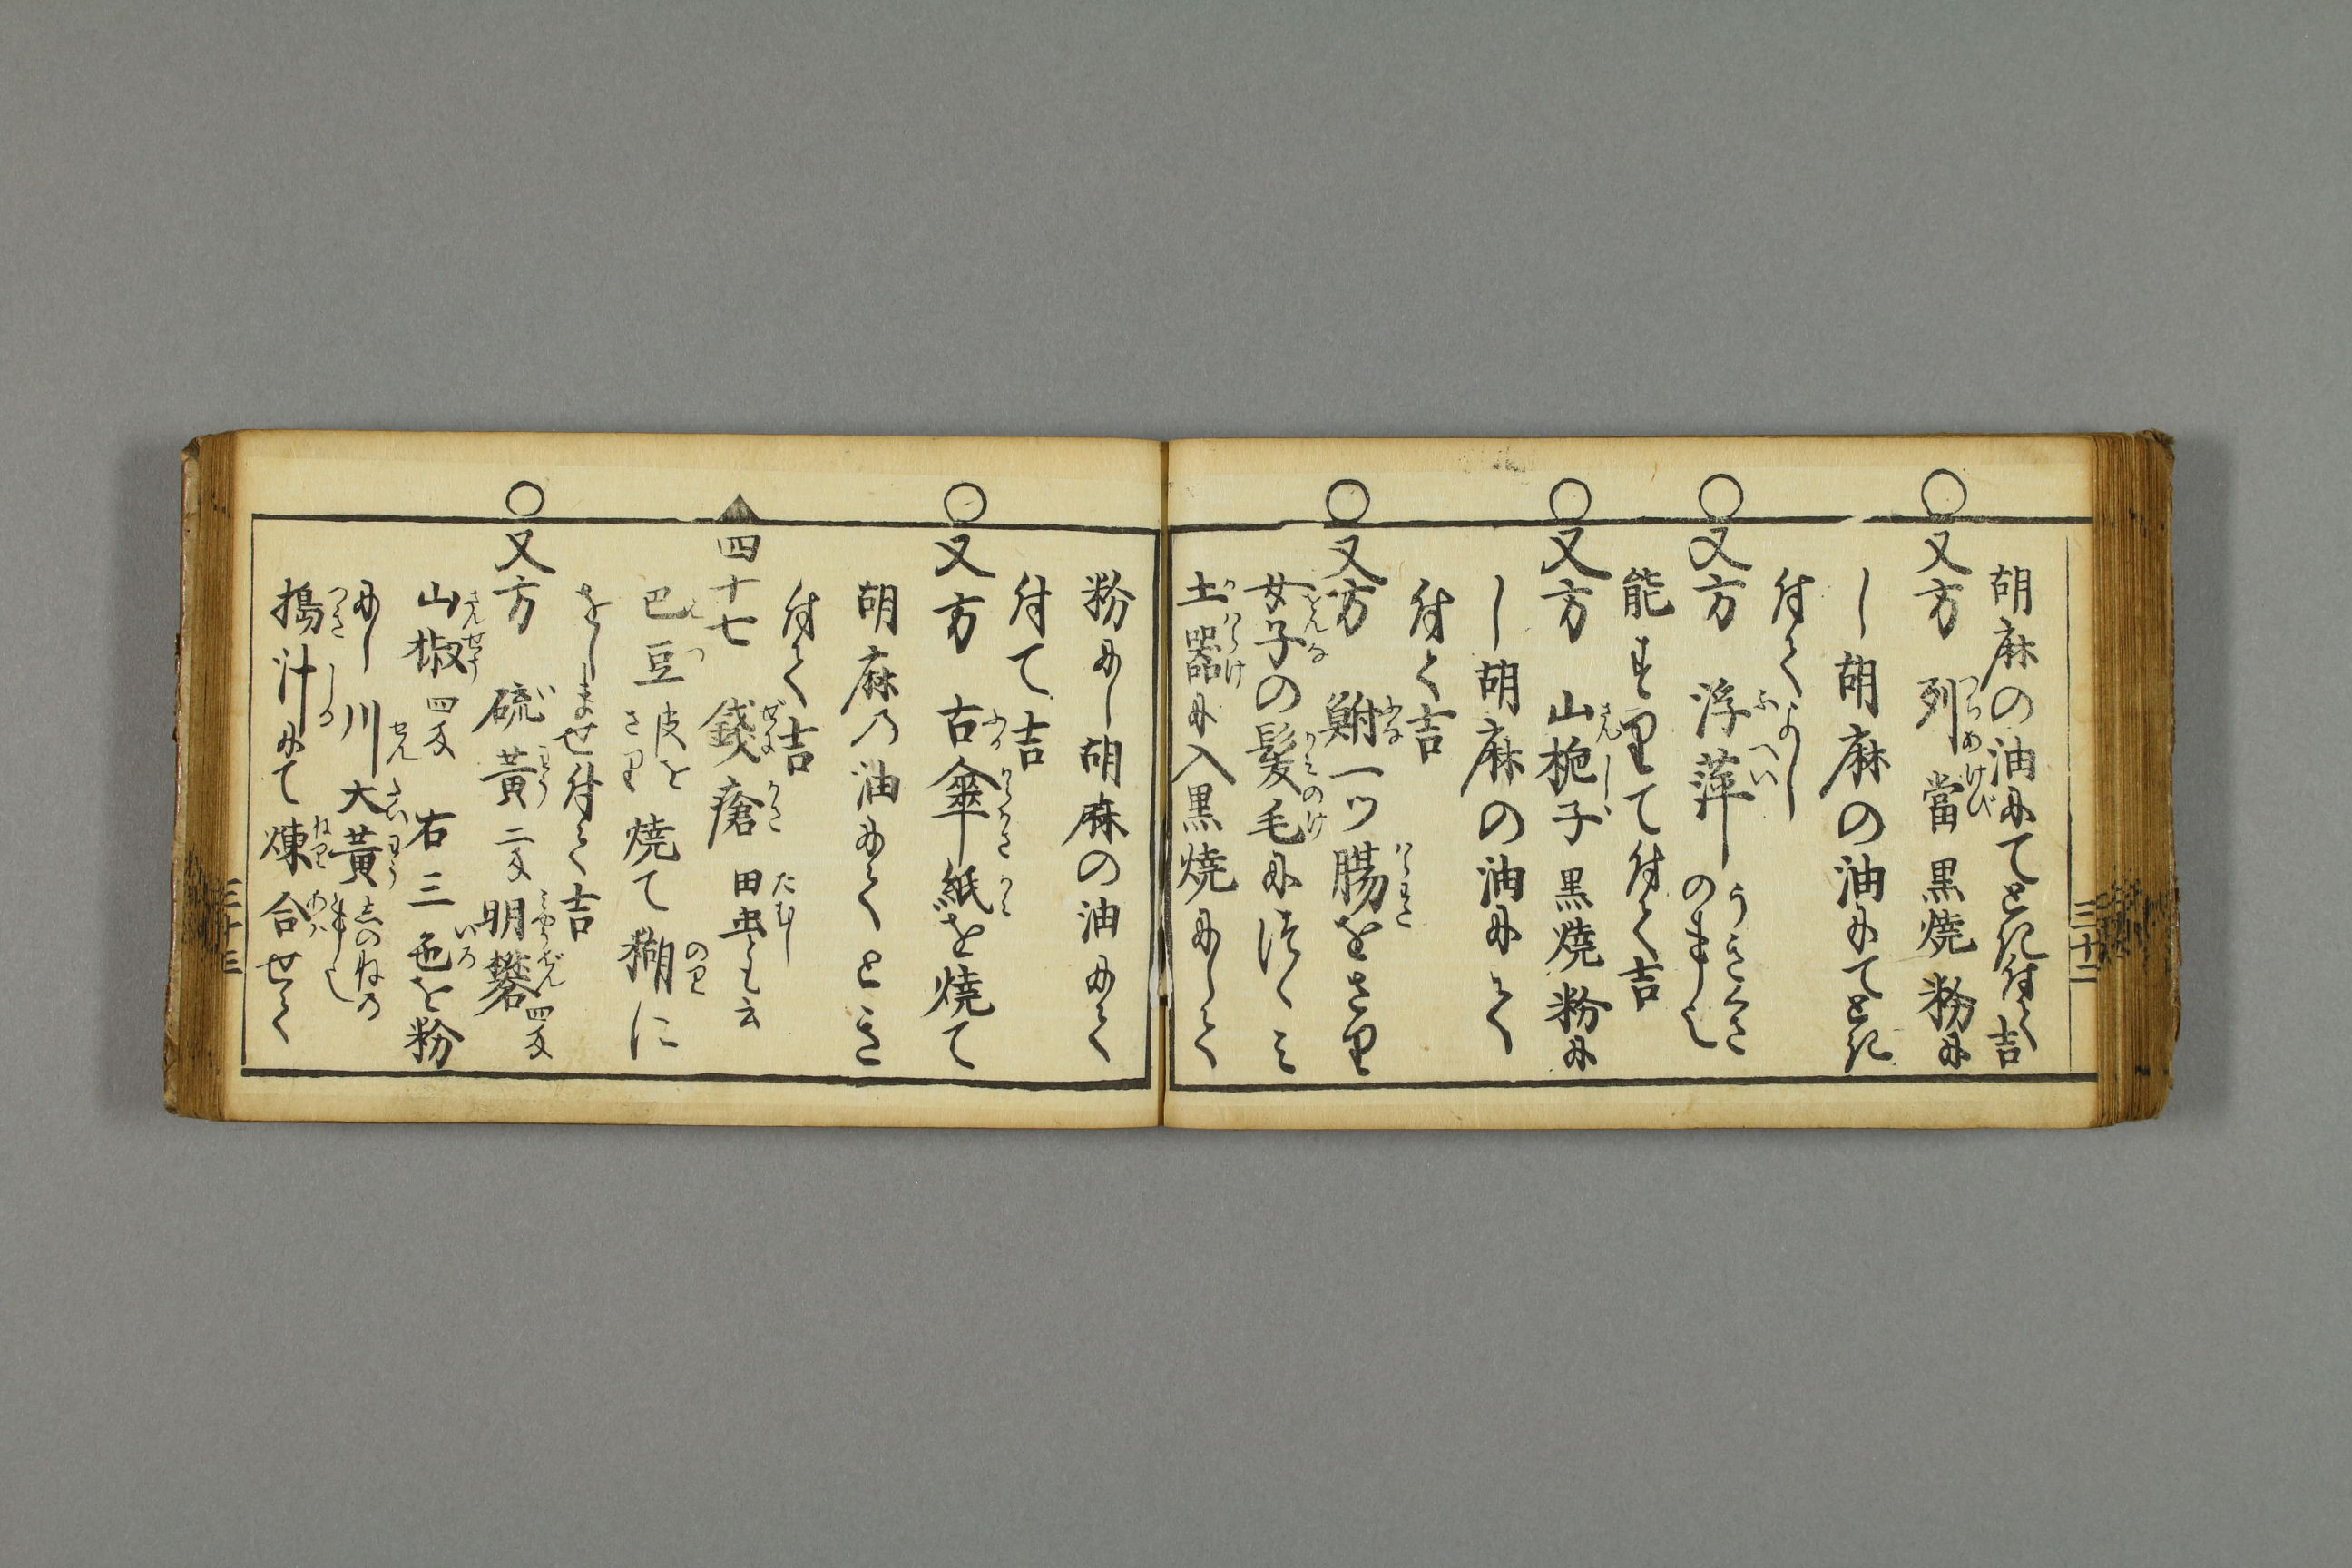 胡麻の油にてとき付て吉
○又方 列當 黒焼粉に
し胡麻の油にてとき
付てよし
○又方 浮萍 うきくさのまし
能すりて付て吉
○又方 山梔子 黒焼粉に
し胡麻の油にて
付て吉
○又方 鮒一ツ腸をさり
女子の髪毛につゝみ
土器に入黒焼にして
三十二
粉にし胡麻の油にて
付て吉
○又方 古傘紙を焼て
胡麻の油にてとき
付て吉
▲四十七 錢瘡 田虫とも云
巴豆 皮をさり 焼て糊に
をしませ付て吉
○又方 硫黄 二匁 明礬 四匁
山椒 四匁 右三色を粉
にし川大黄 しのねの
搗汁にて煉合せて
三十三